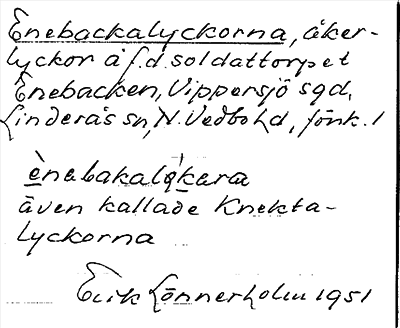 Enebackalyckorna, åker-
lyckor å f.d. soldattorpet
Enebacken, Vippersjö sgd,
Linderås sn, N. Vedbo hd, Jönk. l
även kallade Knekta-
lyckorna
Erik Lönnerholm 1951